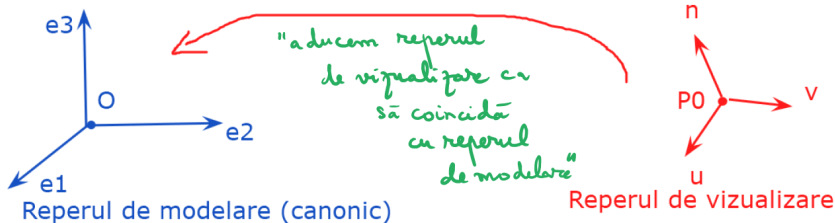 e3
O
e2
e1
Reperul de modelare (canonic)
"aducem reperul
de vizualizare ca
să coincidă
cu reperul
de modelare"
n
P0
v
u
Reperul de vizualizare